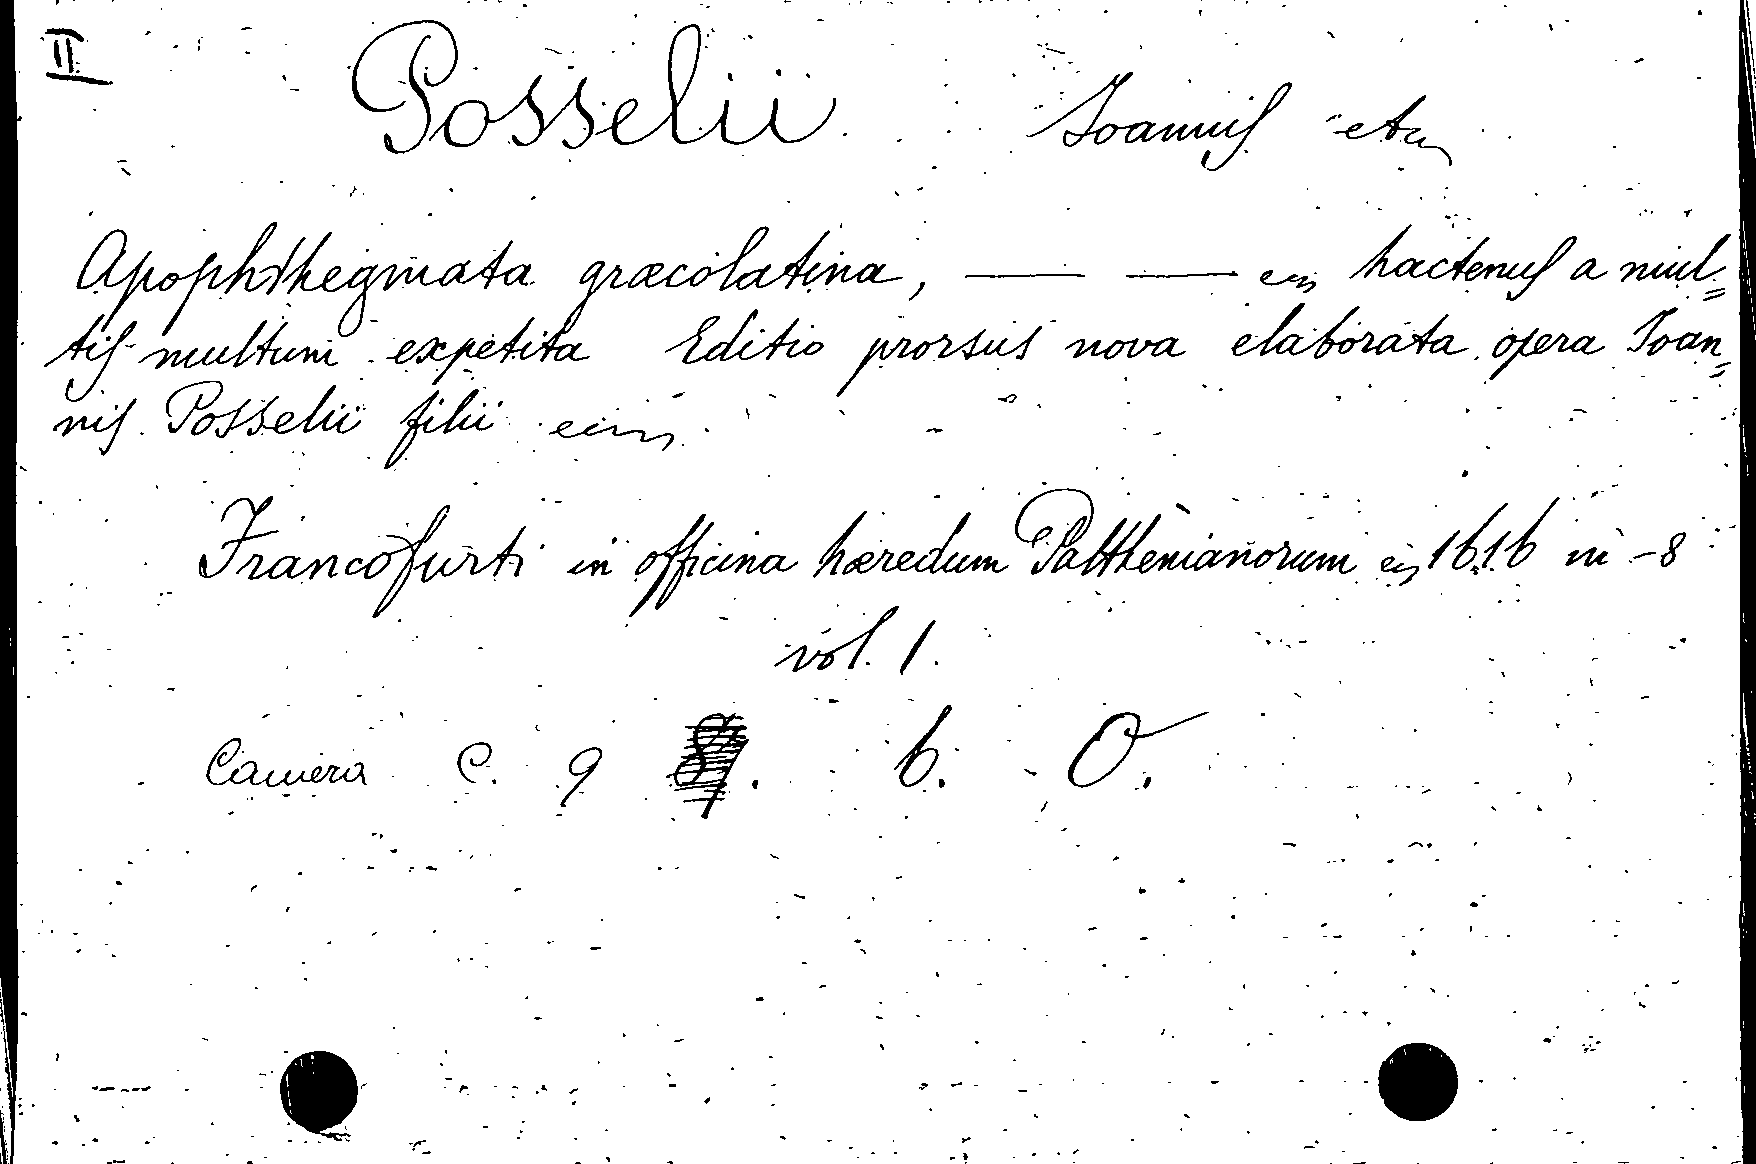 II Posselii Joannis etc
Apophthegmata græcolatina, — — ecc hactenus a mul=
tis multum expetita Editio prorsus nova elaborata opera Joan=
nis Posselii filii ecc
Francofurti in officina hæredum Palthenianorum ecc 1616 in -8
vol. 1.
Camera C. 9 . 6. O.